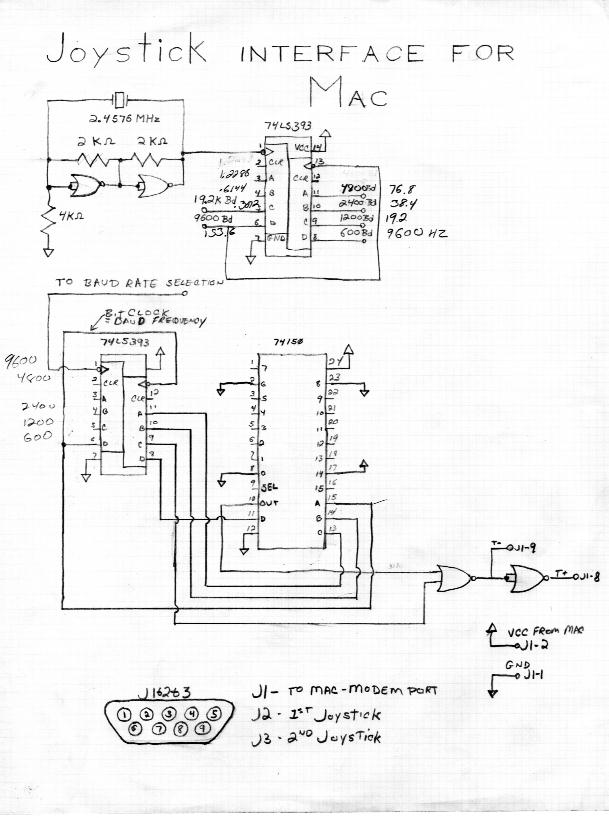 Joystick INTERFACE FOR
MAC
2.4576 MHz
2 KΩ 2 KΩ
4KΩ
74LS393
1 VCC 14
2 CLR 13
1.2288 3 A CLR 12
.6144 4 B A 11 4800Bd 76.8
19.2K Bd .3072 5 C B 10 2400Bd 38.4
9600 Bd 6 D C 9 1200Bd 19.2
153.6 7 GND D 8 600Bd 9600 HZ
TO BAUD RATE SELECTION
Bit CLOCK
= BAUD FREQUENCY
74LS393
9600 1
4800 2 CLR
3 A CLR 12
2400 4 B A 11
1200 5 C B 10
600 6 D C 9
7 D 8
74150
1 7 24
2 6 8 23
3 5 9 22
4 4 10 21
5 3 11 20
6 2 12 19
7 1 13 18
8 0 14 17
9 SEL 15 16
10 OUT A 15
11 D B 14
12 C 13
T- J1-9
T+ J1-8
VCC FROM MAC
J1-2
GND
J1-1
J1-TO MAC-MODEM PORT
J2 - 1ST Joystick
J3 - 2ND Joystick
1 2 3 4 5
6 7 8 9